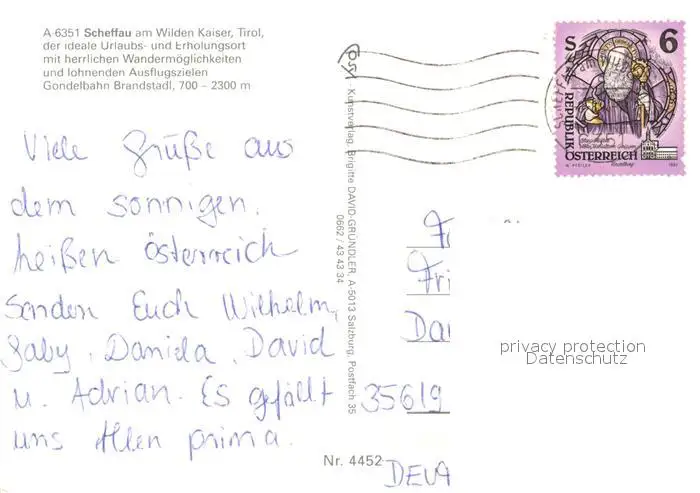 A-6351 Scheffau am Wilden Kaiser, Tirol,
der ideale Urlaubs- und Erholungsort
mit herrlichen Wandermöglichkeiten
und lohnenden Ausflugszielen
Gondelbahn Brandstadl, 700 – 2300 m
Viele Grüße aus
dem sonnigen,
heißen Österreich
senden Euch Wilhelm,
Gaby, Daniela, David
u. Adrian. Es gefällt
uns Allen prima.
Kunstverlag, Brigitte DAVID-GRÜNDLER, A-5013 Salzburg, Postfach 35
0662 / 43 43 34
Nr. 4452
S 6
REPUBLIK
ÖSTERREICH
1993
Fri
Dau
35619
DEUT
privacy protection
Datenschutz